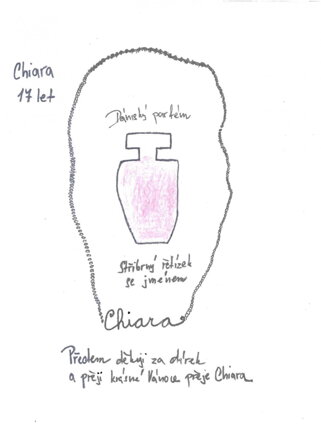 Chiara
17 let
Dámský parfém
Stříbrný řetízek
se jménem
Chiara
Předem děkuji za dárek
a přeji krásné Vánoce přeje Chiara